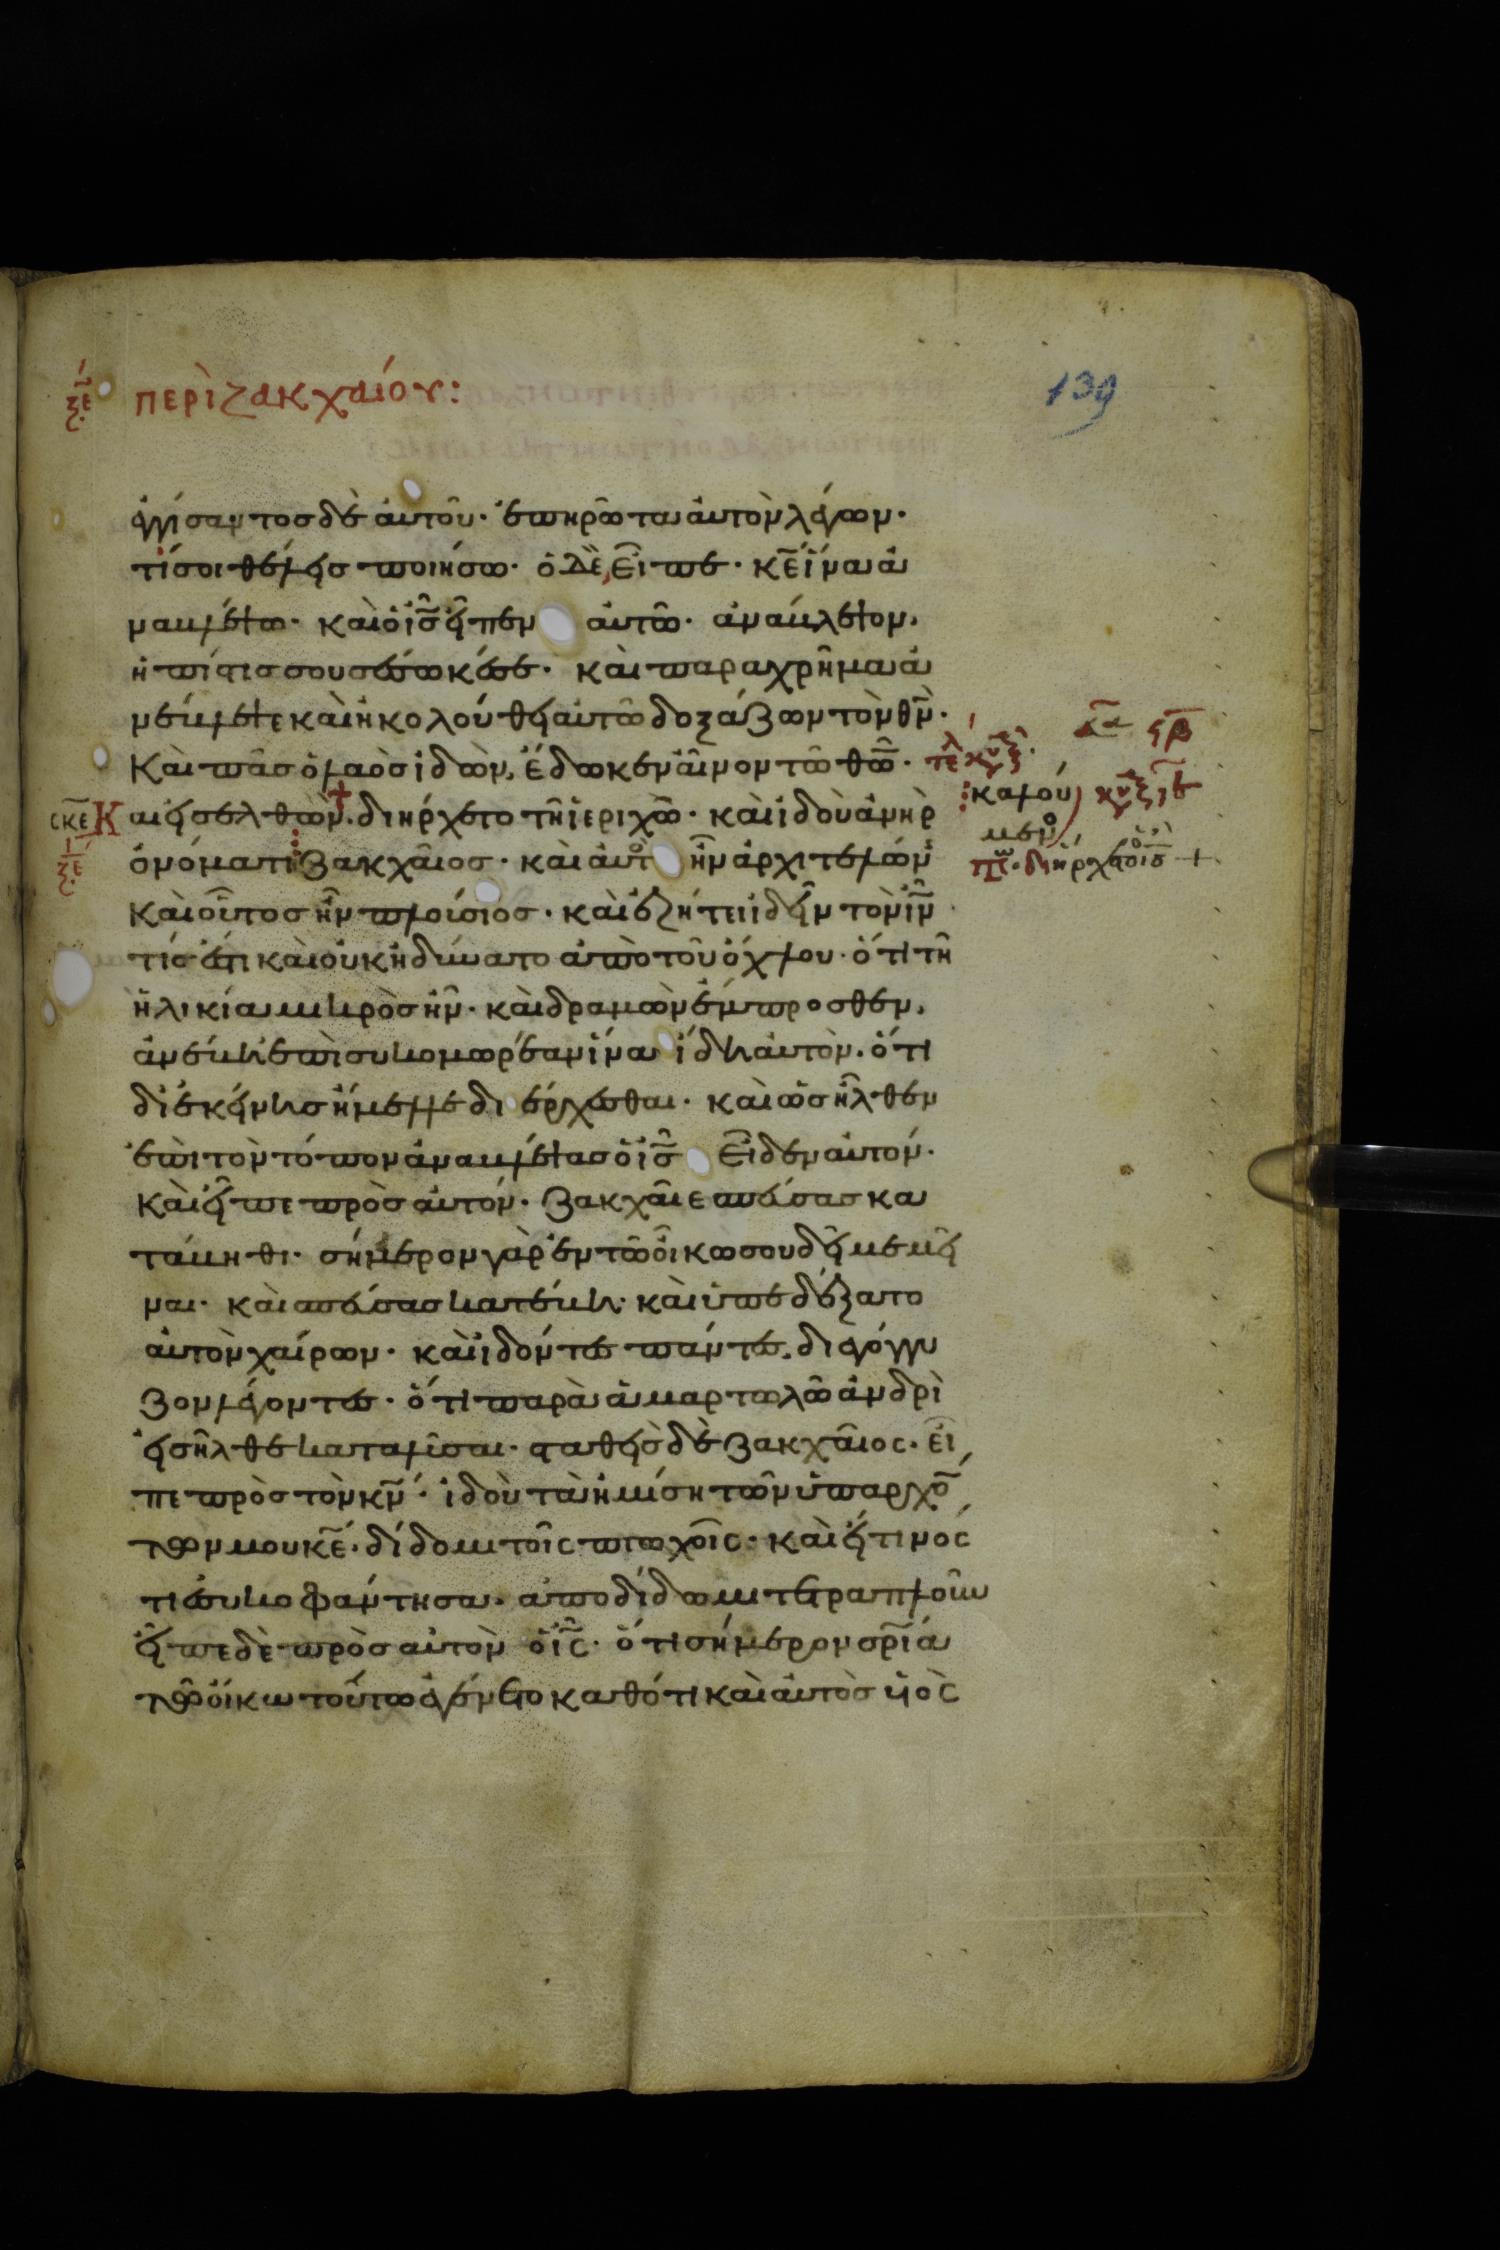 ξε
περὶ ζακχαίου:
139
ἐγγίσαντος δὲ αὐτοῦ· ἐπηρώτα αὐτὸν λέγων·
τί σοι θέλεις ποιήσω· ὁ δὲ εἶπε· κε̅ ἵνα ἀ
ναβλέψω· καὶ ὁ ις̅ εἶπεν αὐτῶ· ἀνάβλεψον,
ἡ πίστις σου σέσωκέ σε· καὶ παραχρῆμα ἀ
νέβλεψε καὶ ἠκολούθει αὐτῶ δοξάζων τὸν θν̅·
Καὶ πᾶς ὁ λαὸς ἰδὼν, ἔδωκεν αἶνον τῶ θω̅·
σκε
Καὶ εἰσελθὼν· διήρχετο τὴν ἱεριχῶ· καὶ ἰδοὺ ἀνὴρ
ὀνόματι ζακχαῖος· καὶ αὐτὸ ἦν ἀρχιτελώνη
καὶ οὗτος ἦν πλούσιος· καὶ ἐζήτει ἰδεῖν τὸν ιν̅
τίς ἐστι καὶ οὐκ ἠδύνατο ἀπὸ τοῦ ὄχλου· ὅτι τῆ
ἡλικία μικρὸς ἦν· καὶ δραμὼν ἔμπροσθεν,
ἀνέβη ἐπὶ συκομορέαν ἵνα ἴδη αὐτὸν· ὅτι
δι ἐκείνης ἤμελλε διέρχεσθαι· καὶ ὡς ἦλθεν
ἐπὶ τὸν τόπον ἀναβλέψας ὁ ις̅ εἶδεν αὐτόν·
καὶ εἶπε πρὸς αὐτόν· ζακχαῖε σπεύσας κα
τάβηθι· σήμερον γὰρ ἐν τῶ οἴκω σου δεῖ με μεῖ
ναι· καὶ σπεύσας κατέβη· καὶ ὑπεδέξατο
αὐτὸν χαίρων· καὶ ἰδόντες πάντες, διεγόγγυ
ζον λέγοντες· ὅτι παρὰ ἁμαρτωλῶ ἀνδρὶ
εἰσῆλθε καταλῦσαι· σταθεὶς δὲ ζακχαῖος· εἶ
πε πρὸς τὸν κν̅· ἰδοὺ τὰ ἡμίση τῶν ὑπαρχό
των μου κε̅· δίδωμι τοῖς πτωχοῖς· καὶ εἴ τινός
τι ἐσυκοφάντησα· ἀποδίδωμι τετραπλοῦν
εἶπε δὲ πρὸς αὐτὸν ὁ ις̅· ὅτι σήμερον σρ̅ία
τῶ οἴκω τούτω ἐγένετο καθότι καὶ αὐτὸς υἱὸς